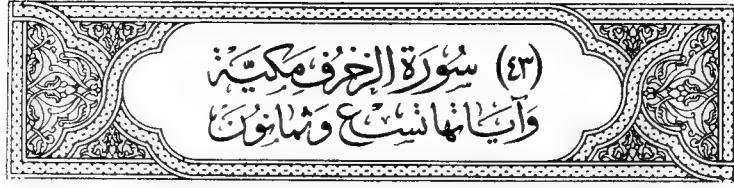 (٤٣) سُورَة الزخرُف مَكيَّة
وَآيَاتهَا تِسْع وَثمَانُونَ